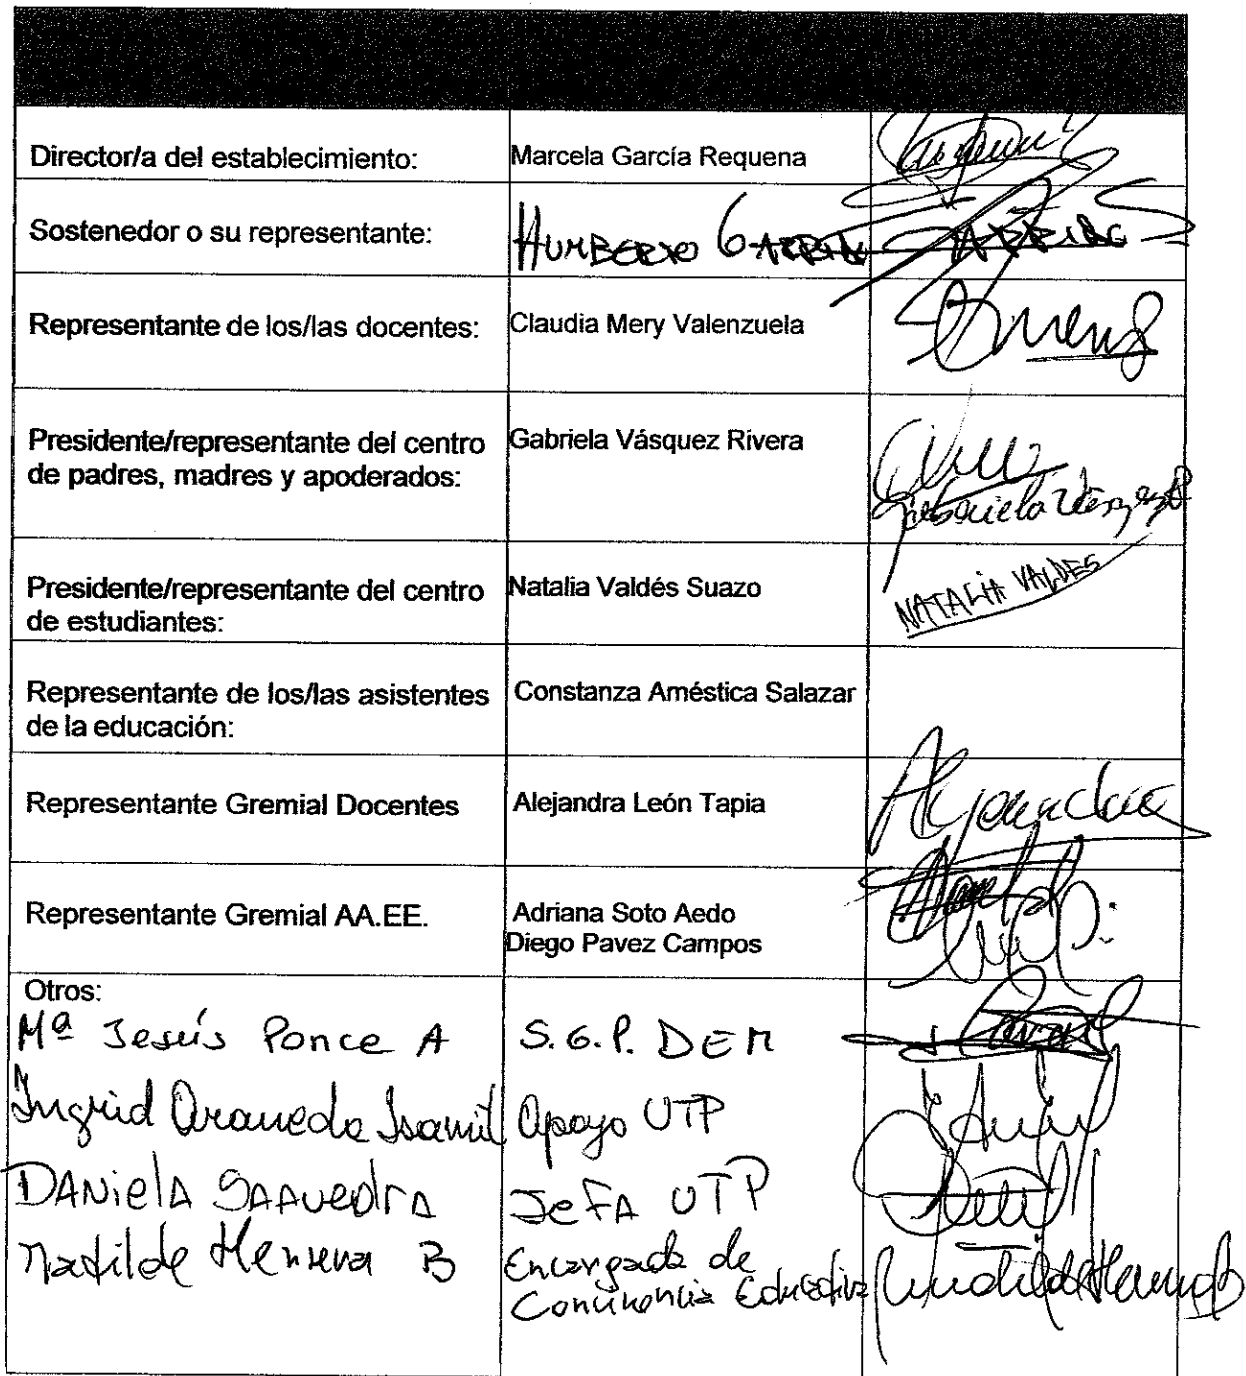 Director/a del establecimiento: Marcela García Requena
Sostenedor o su representante: HUMBERTO GARRIDO
Representante de los/las docentes: Claudia Mery Valenzuela
Presidente/representante del centro de padres, madres y apoderados: Gabriela Vásquez Rivera
Gabriela Vásquez
Presidente/representante del centro de estudiantes: Natalia Valdés Suazo
NATALIA VALDES
Representante de los/las asistentes de la educación: Constanza Améstica Salazar
Representante Gremial Docentes Alejandra León Tapia
Alejandra
Representante Gremial AA.EE. Adriana Soto Aedo
Diego Pavez Campos
Otros:
Mª Jesús Ponce A S.G.P. DEM
Ingrid Araneda Isamit Apoyo UTP
DANielA SAAvedrA JeFA UTP
Matilde Herrera B Encargada de
Convivencia Educativa